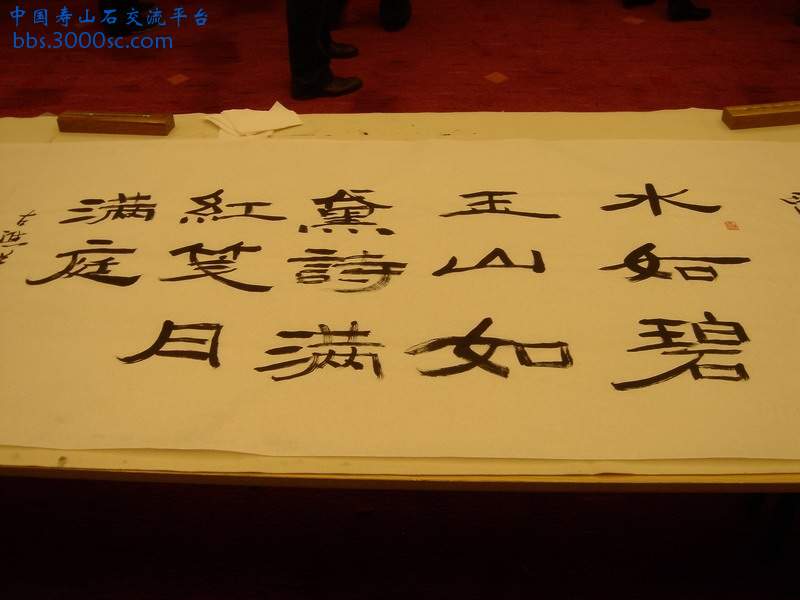 中国寿山石交流平台
bbs.3000sc.com
水如碧
玉山如
黛詩滿
紅箋月
滿庭